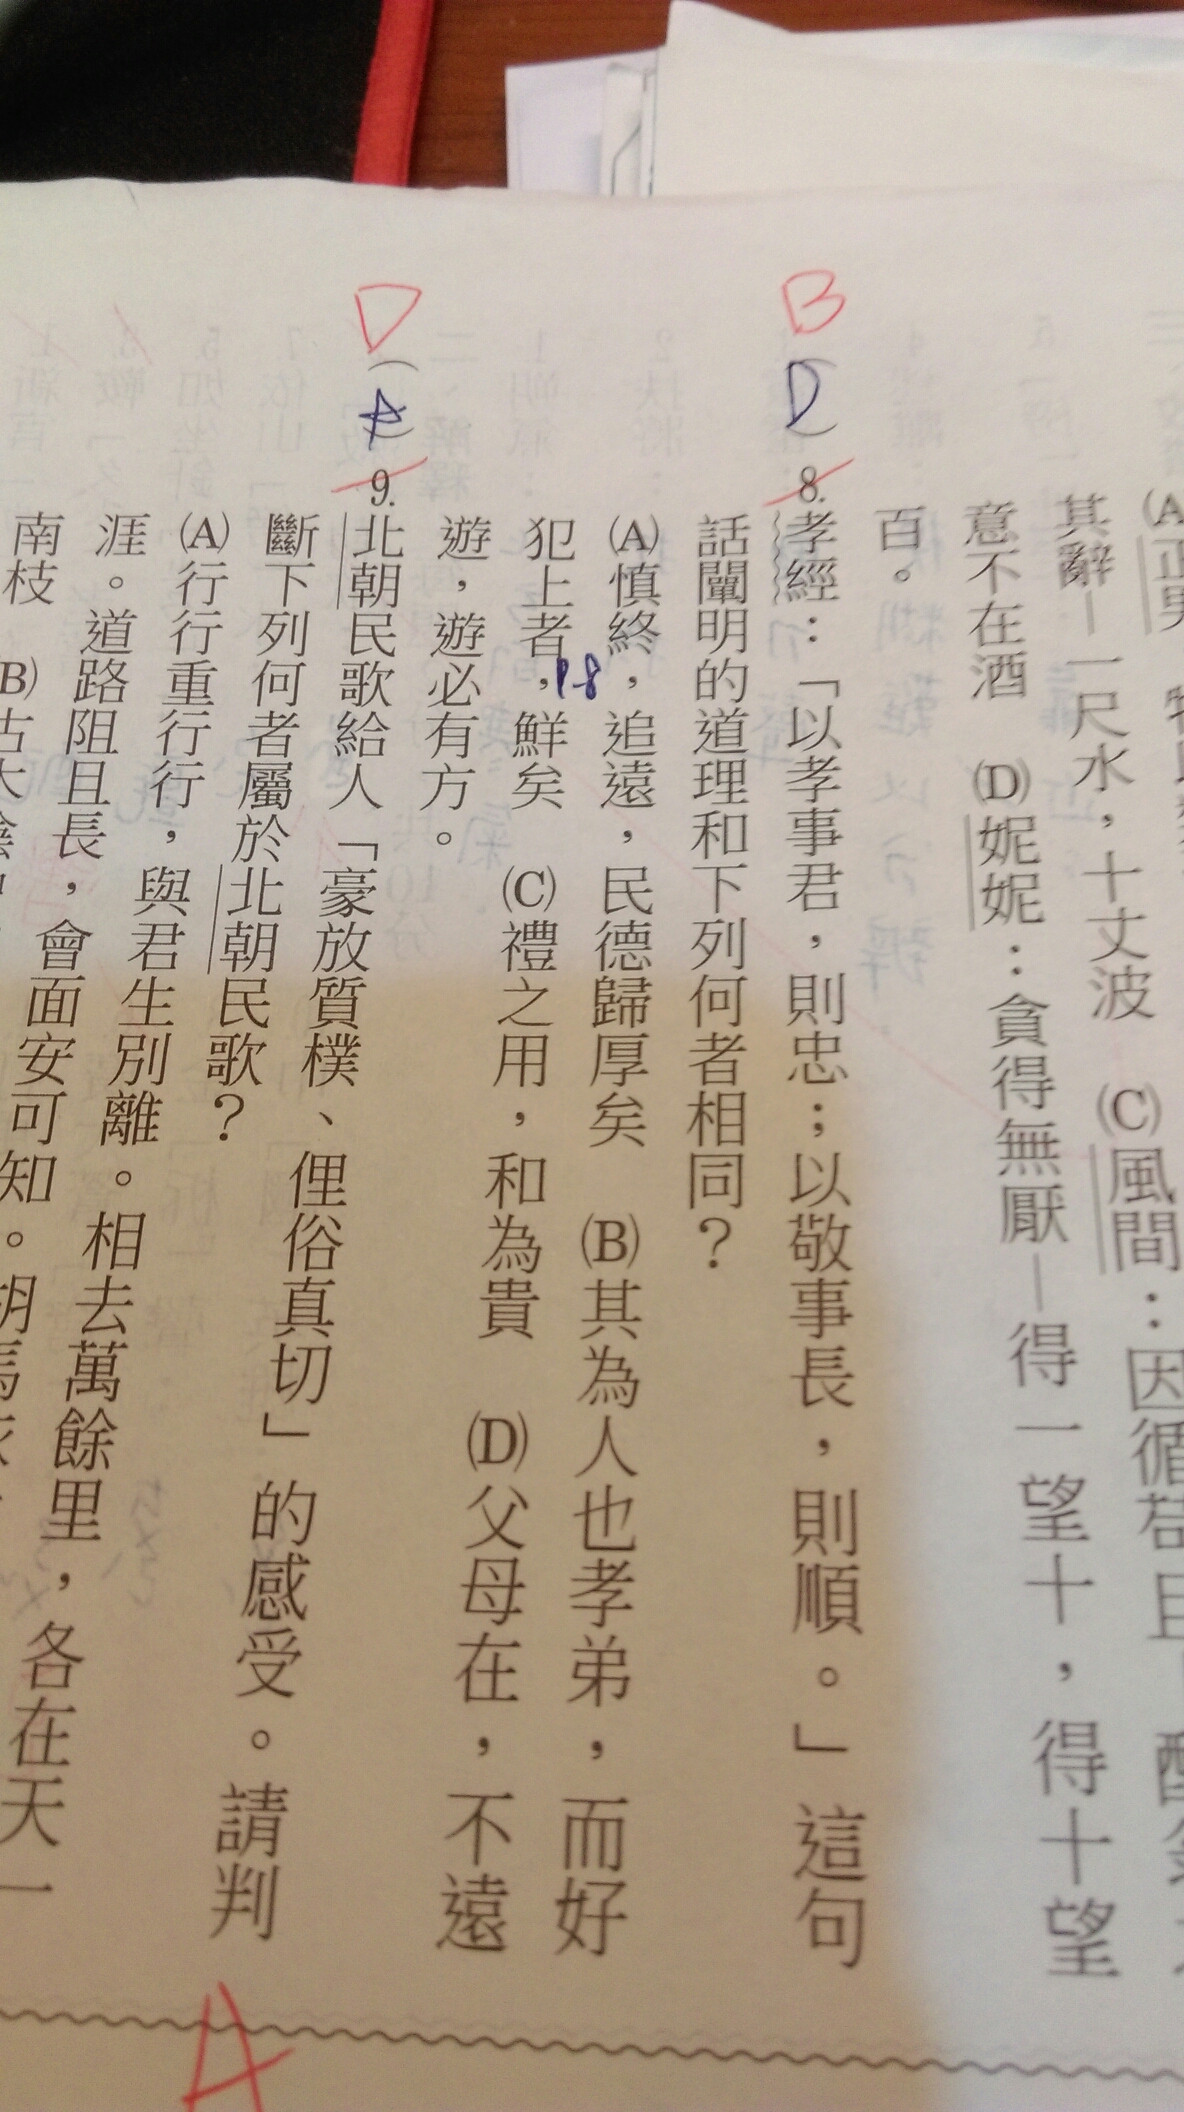 (A)正男
其辭－一尺水，十丈波 (C)風間：因循苟且－
意不在酒 (D)妮妮：貪得無厭－得一望十，得十望
百。
B
(D) 8. 孝經：「以孝事君，則忠；以敬事長，則順。」這句
話闡明的道理和下列何者相同？
(A)慎終，追遠，民德歸厚矣 (B)其為人也孝弟，而好
犯上者，鮮矣 (C)禮之用，和為貴 (D)父母在，不遠
P8
遊，遊必有方。
D
9. 北朝民歌給人「豪放質樸、俚俗真切」的感受。請判
斷下列何者屬於北朝民歌？
(A)行行重行行，與君生別離。相去萬餘里，各在天一
涯。道路阻且長，會面安可知。胡馬依
南枝 (B)古大
A